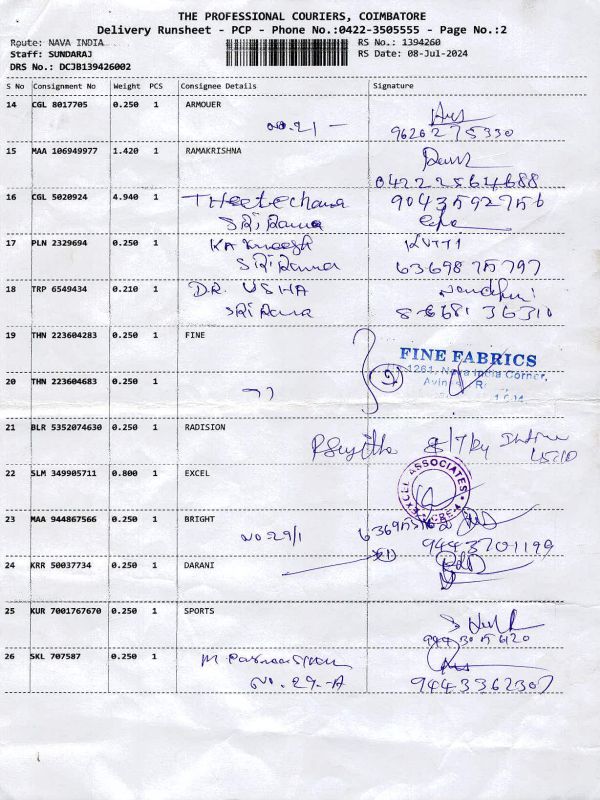 THE PROFESSIONAL COURIERS, COIMBATORE
Delivery Runsheet - PCP - Phone No.:0422-3505555 - Page No.:2
Route: NAVA INDIA RS No.: 1394260
Staff: SUNDARAJ RS Date: 08-Jul-2024
DRS No.: DCJB139426002
S No Consignment No Weight PCS Consignee Details Signature
14 CGL 8017705 0.250 1 ARMOUER
NO.21 - 9620275330
15 MAA 106949977 1.420 1 RAMAKRISHNA
04222564688
16 CGL 5020924 4.940 1 9043592756
SRi Rama
17 PLN 2329694 0.250 1 KUTTI
SRi Rama 6369875797
18 TRP 6549434 0.210 1 DR. USHA
SRi Rama 8668136310
19 THN 223604283 0.250 1 FINE
FINE FABRICS
1261, Nava India Corner,
20 THN 223604683 0.250 1 2
21 BLR 5352074630 0.250 1 RADISION
22 SLM 349905711 0.800 1 EXCEL
EXCEL ASSOCIATES CBE-4
23 MAA 944867566 0.250 1 BRIGHT
NO 29/1 9443701199
24 KRR 50037734 0.250 1 DARANI
25 KUR 7001767670 0.250 1 SPORTS
26 SKL 707587 0.250 1 M
NO. 29.-A 9443362307